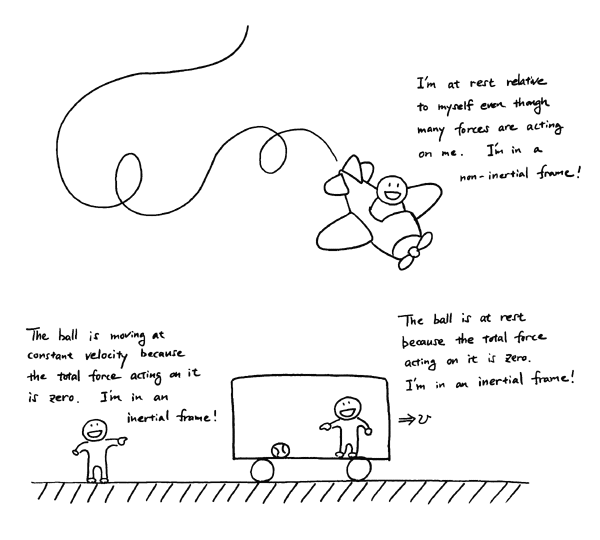 I'm at rest relative
to myself even though
many forces are acting
on me. I'm in a
non-inertial frame!
The ball is moving at
constant velocity because
the total force acting on it
is zero. I'm in an
inertial frame!
The ball is at rest
because the total force
acting on it is zero.
I'm in an inertial frame!
⇒v